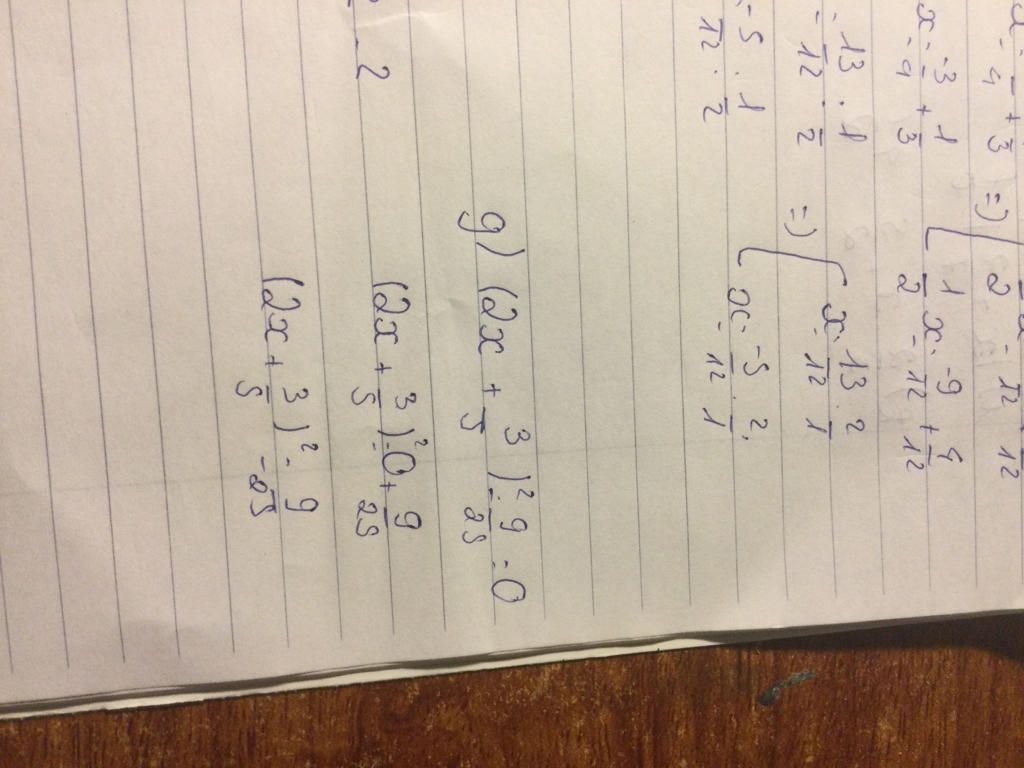 x = -3/4 + 1/3 [ 1/2 x = -9/12 + 4/12
= 13/12 : 1/2 => [ x = 13/12 . 2/1
= -5/12 : 1/2 x = -5/12 . 2/1
g) (2x + 3/5)² - 9/25 = 0
- 2 (2x + 3/5)² = 0 + 9/25
(2x + 3/5)² = 9/25